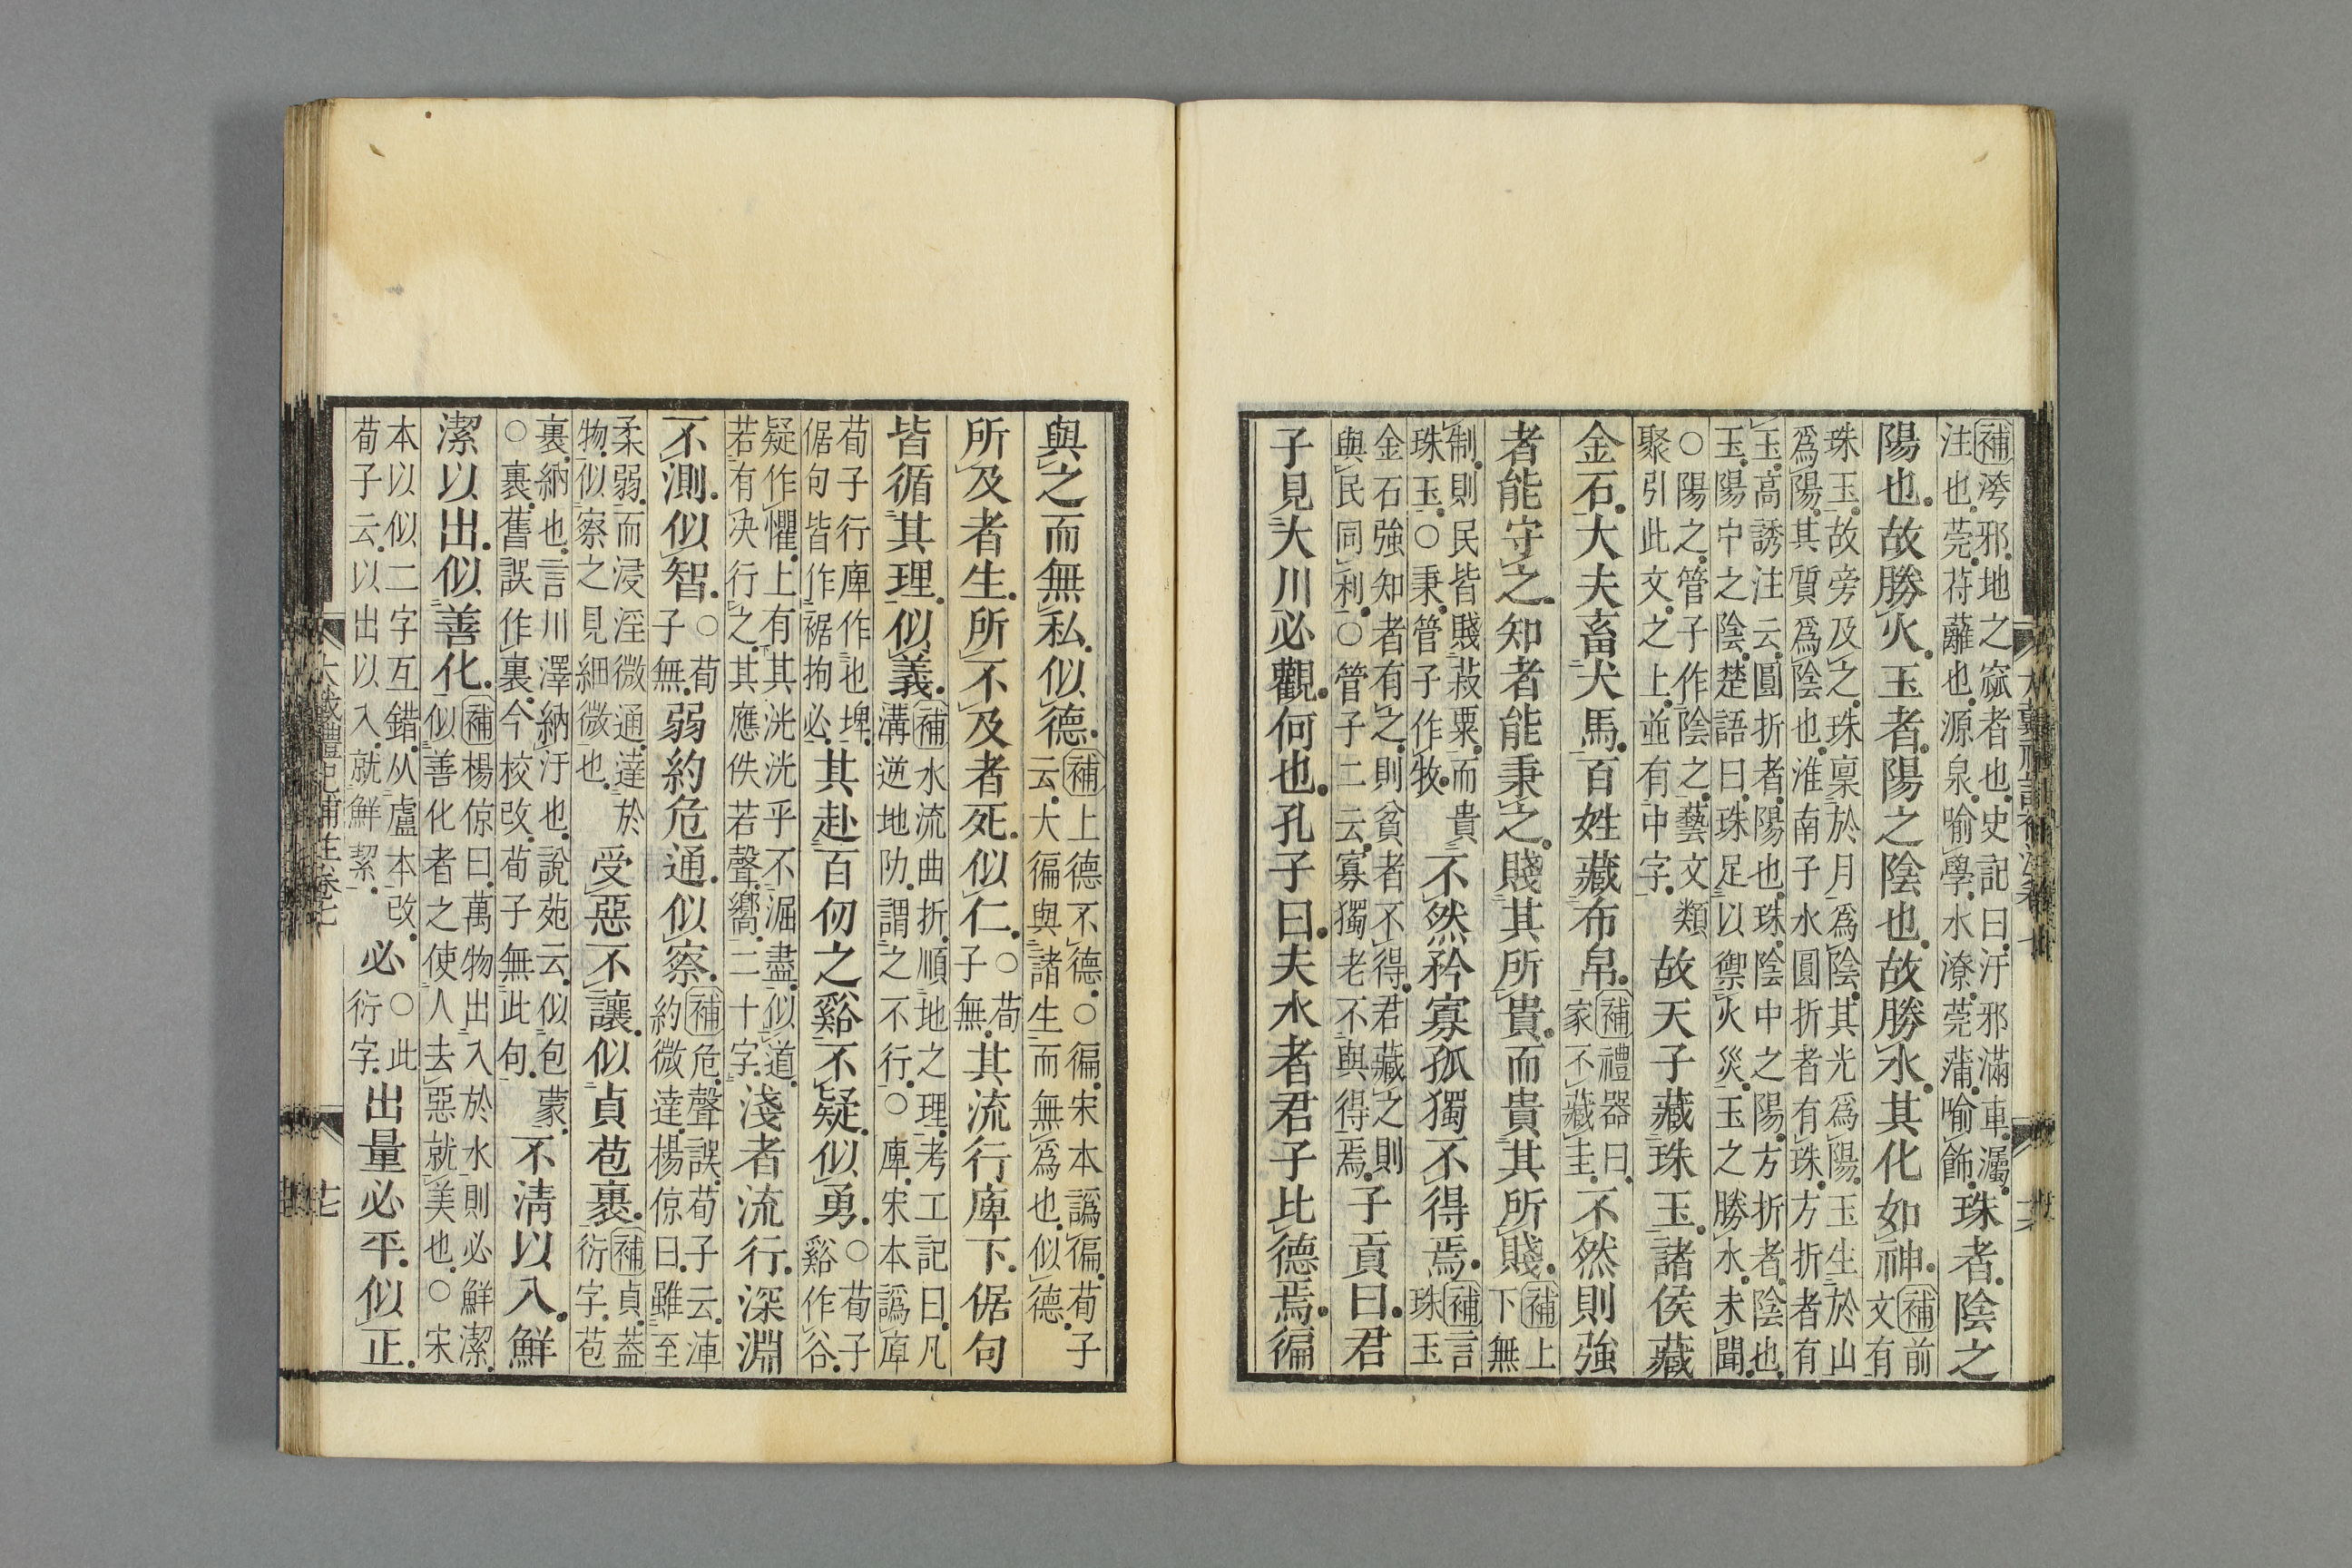 補洿邪地之窊者也史記曰汙邪滿車灟
注也莞苻蘺也源泉喻學水潦莞蒲喻飾
珠者陰之
陽也故勝火玉者陽之陰也故勝水其化如神
補前
文有
珠玉故旁及之珠稟於月爲陰其光爲陽玉生於山
爲陽其質爲陰也淮南子水圓折者有珠方折者有
玉高誘注云圓折者陽也珠陰中之陽方折者陰也
玉陽中之陰楚語曰珠足以禦火災玉之勝水未聞
○陽之管子作陰之藝文類
聚引此文之上並有中字
故天子藏珠玉諸侯藏
金石大夫畜犬馬百姓藏布帛
補禮器曰
家不藏圭
不然則強
者能守之知者能秉之賤其所貴而貴其所賤
補上
下無
制則民皆賤菽粟而貴
珠玉○秉管子作牧
不然矜寡孤獨不得焉
補言
珠玉
金石強知者有之則貧者不得君藏之則
與民同利○管子二云寡獨老不與得焉
子貢曰君
子見大川必觀何也孔子曰夫水者君子比德焉徧
與之而無私似德
補上德不德○徧宋本譌徧荀子
云大徧與諸生而無爲也似德
所及者生所不及者死似仁
○荀
子無
其流行庳下倨句
皆循其理似義
補水流曲折順地之理考工記曰凡
溝逆地阞謂之不行○庳宋本譌庫
荀子行庳作也埤
倨句皆作裾拘必
其赴百仞之谿不疑似勇
○荀子
谿作谷
疑作懼上有其洸洸乎不淈盡似道
若有決行之其應佚若聲嚮二十字
淺者流行深淵
不測似智
○荀
子無
弱約危通似察
補危聲誤荀子云淖
約微達楊倞曰雖至
柔弱而浸淫微通達於
物似察之見細微也
受惡不讓似貞苞裹
補貞蓋
衍字苞
裹納也言川澤納汙也說苑云似包蒙
○裹舊誤作裏今校改荀子無此句
不淸以入鮮
潔以出似善化
補楊倞曰萬物出入於水則必鮮潔
似善化者之使人去惡就美也○宋
本以似二字互錯从盧本改
荀子云以出以入就鮮絜
必
○此
衍字
出量必平似正